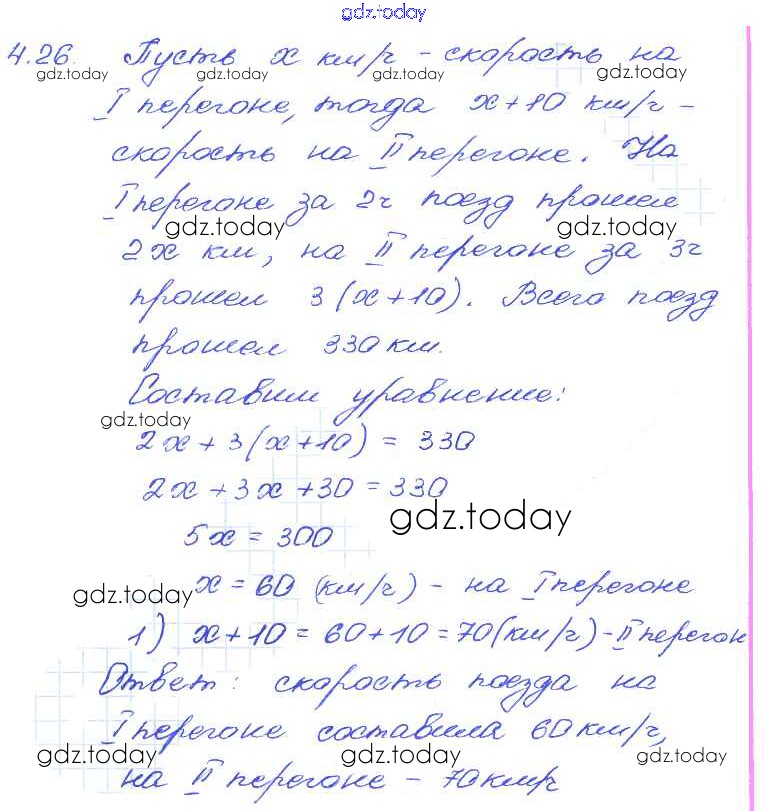 gdz.today
4.26. Пусть x км/ч - скорость на
gdz.today gdz.today gdz.today gdz.today
I перегоне, тогда x+10 км/ч -
скорость на II перегоне. На
I перегоне за 2ч поезд прошел
gdz.today gdz.today
2x км, на II перегоне за 3ч
прошел 3(x+10). Всего поезд
прошел 330 км.
Составим уравнение:
gdz.today
2x + 3(x+10) = 330
2x + 3x + 30 = 330
gdz.today
5x = 300
x = 60 (км/ч) - на I перегоне
gdz.today
1) x+10 = 60+10 = 70 (км/ч) - II перегон
Ответ: скорость поезда на
I перегоне составила 60 км/ч,
gdz.today gdz.today gdz.today
на II перегоне - 70 км/ч